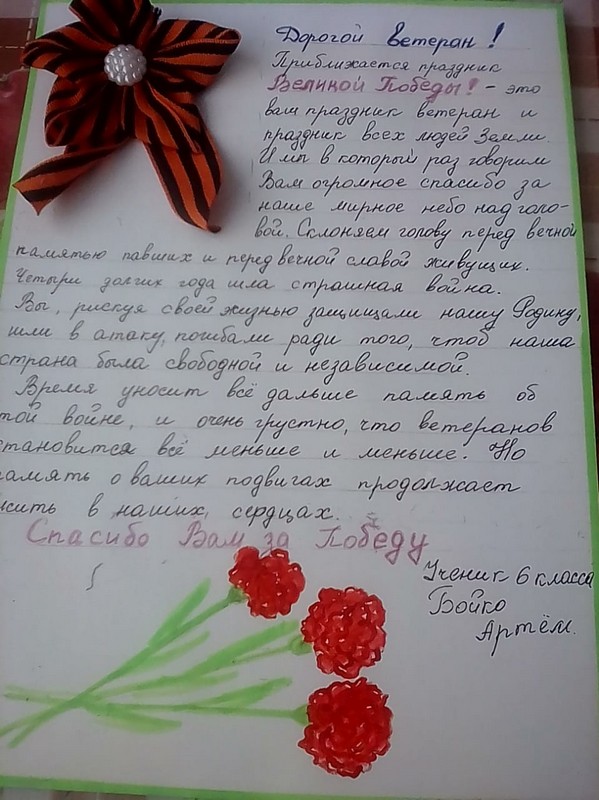 Дорогой ветеран!
Приближается праздник
Великой Победы! - это
ваш праздник ветеран и
праздник всех людей Земли.
И мы в который раз говорим
Вам огромное спасибо за
наше мирное небо над голо-
вой. Склоняем голову перед вечной
памятью павших и перед вечной славой живущих.
Четыри долгих года шла страшная война.
Вы, рискуя своей жизнью защищали нашу Родину,
шли в атаку, погибали ради того, чтоб наша
страна была свободной и независимой.
Время уносит всё дальше память об
той войне, и очень грустно, что ветеранов
становится всё меньше и меньше. Но
память о ваших подвигах продолжает
жить в наших сердцах.
Спасибо Вам за Победу
Ученик 6 класса
Бойко
Артём.